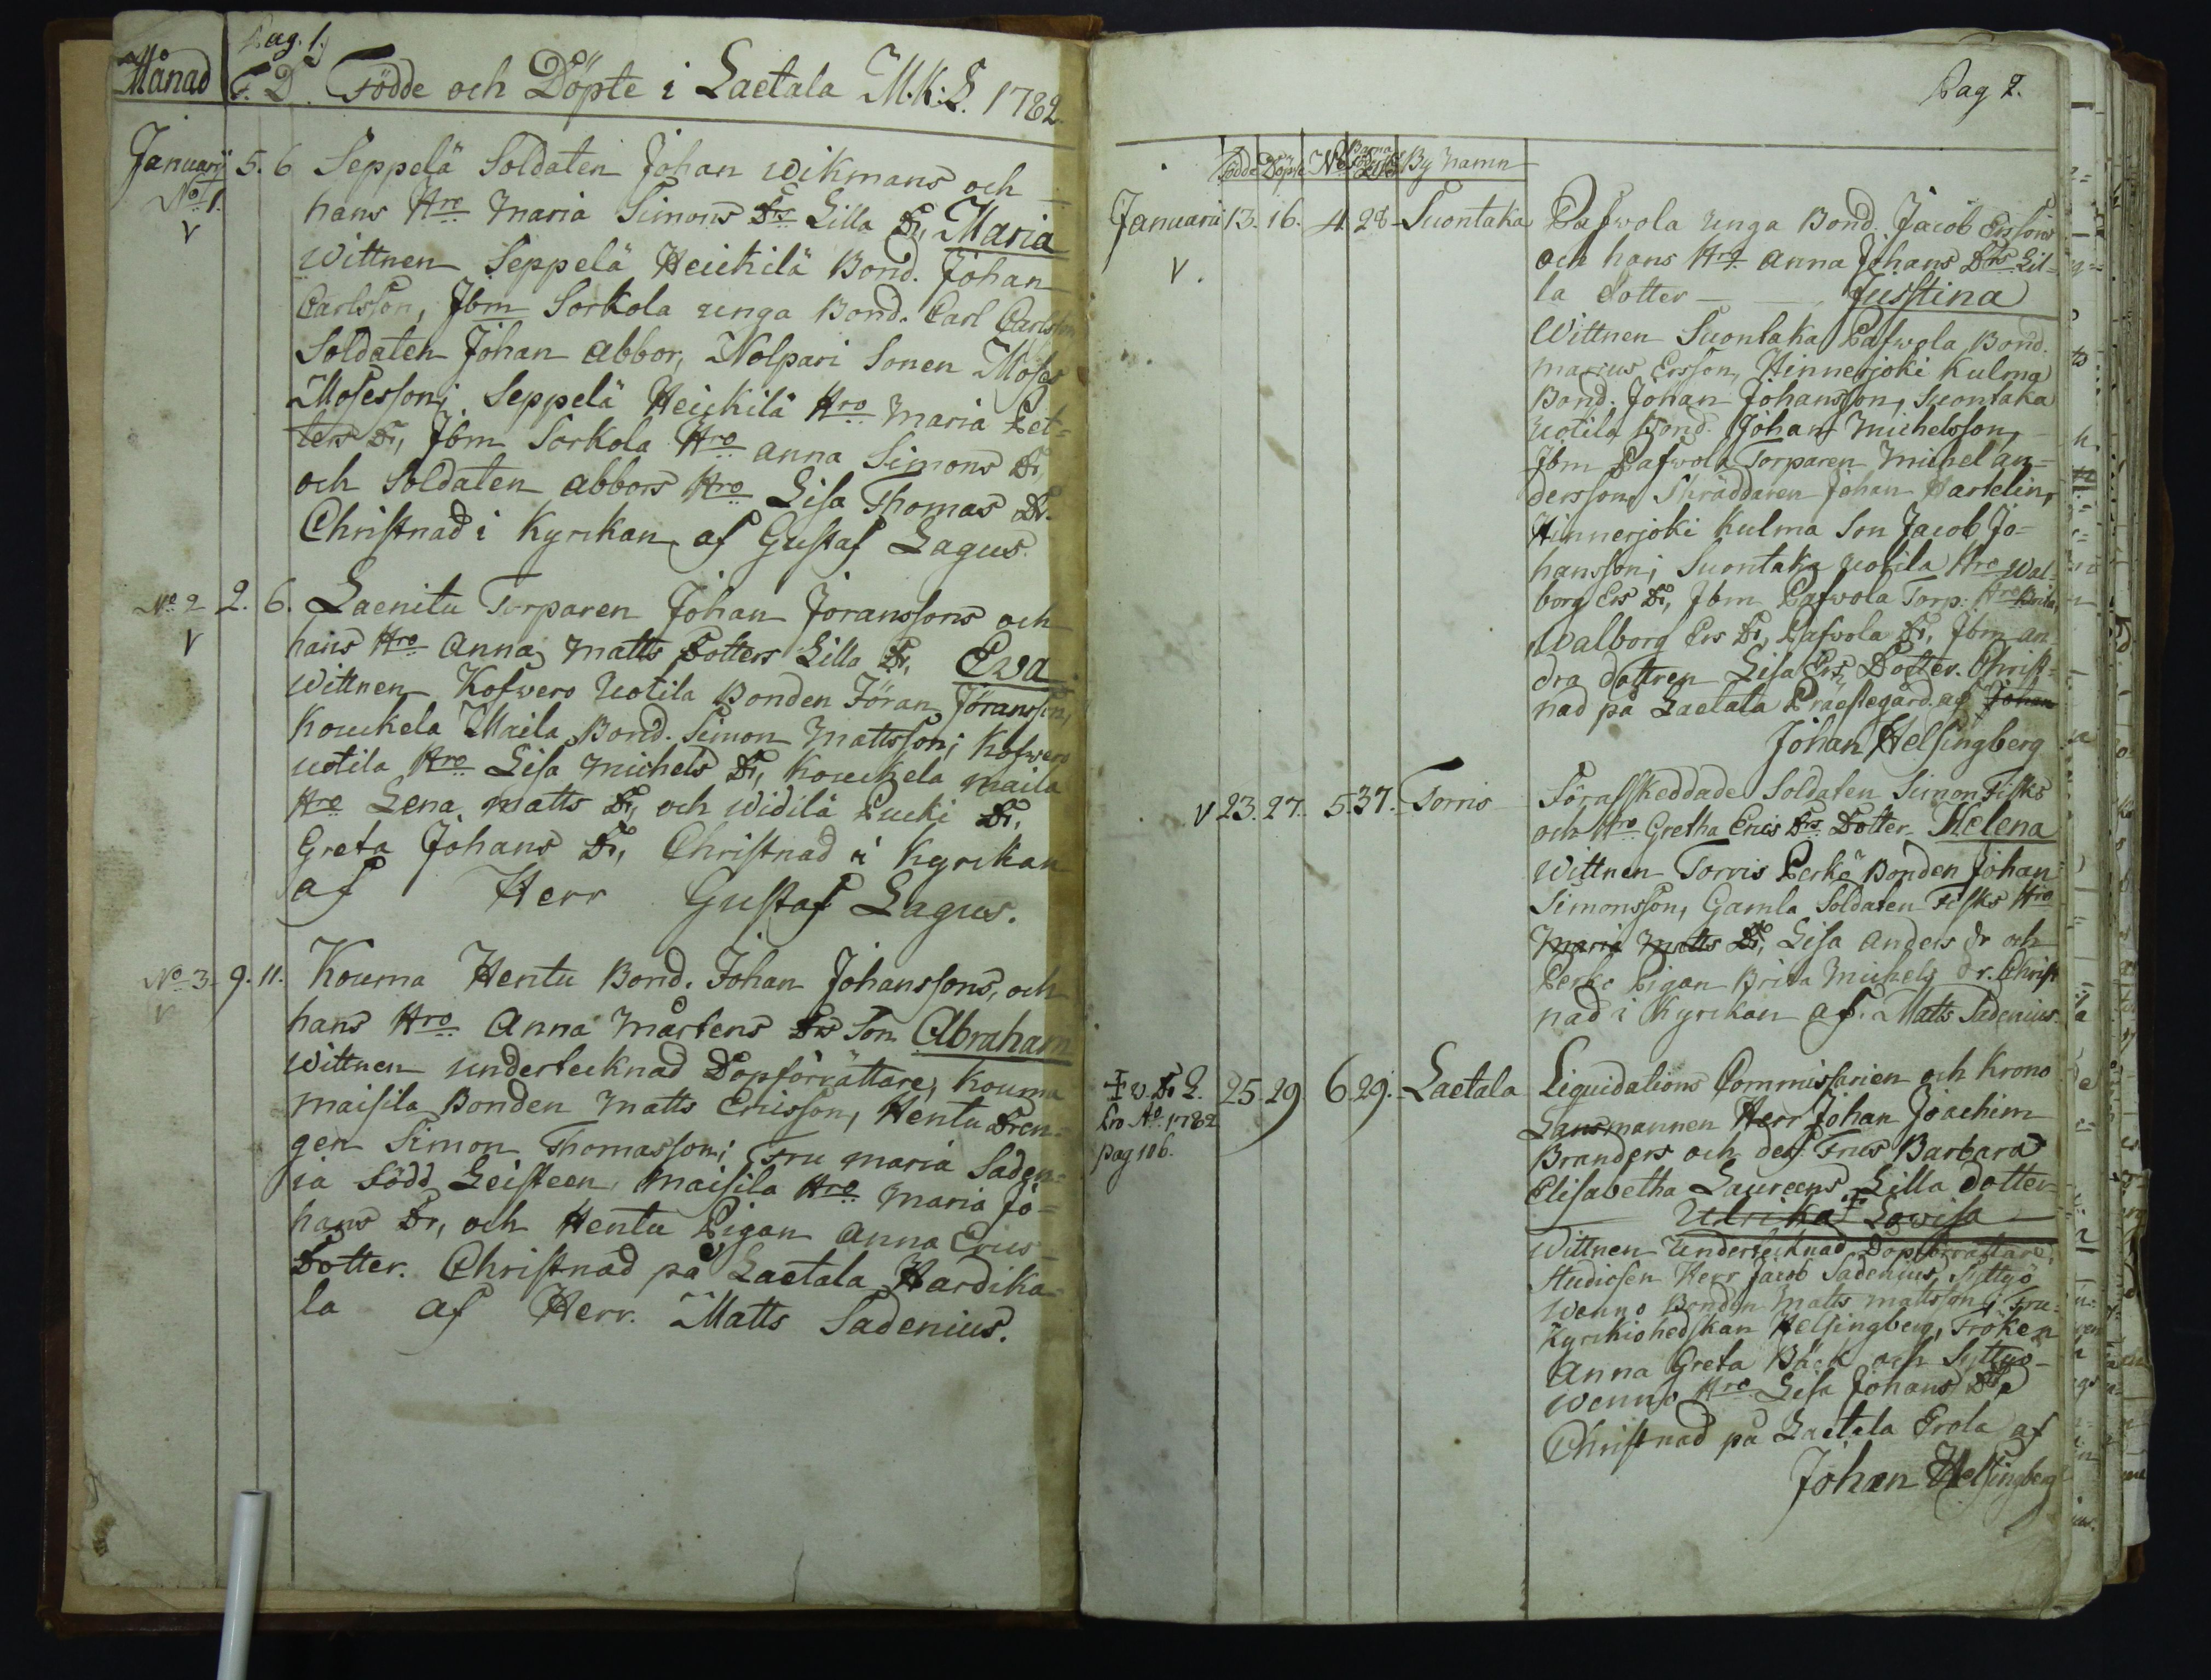 Pag. 1.
Månad F. D. Födde och Döpte i Laetala M.K:L. 1782.
Januarii 5. 6 Seppelä Soldaten Johan Wikmans och
No 1. hans Hro Maria Simons Drs Lilla Dr, Maria
V Wittnen Seppelä Heickilä Bond. Johan
Carlsson, Jbm Sorkola unga Bond. Carl Carlsson
Soldaten Johan Abbor, Nolpari Sonen Moses
Mosesson; Seppelä Heickilä Hro Maria Pet=
ters Dr, Jbm Sorkola Hro Anna Simons Dr,
och Soldaten Abbors Hro Lisa Thomas Dr.
Christnad i Kyrckan af Gustaf Lagus.
No 2 2. 6. Laenitu Torparen Johan Joranssons och
V hans Hro Anna Matts Dotters Lilla Dr, Ewa
Wittnen Kofwero Uotila Bonden Jöran Jöransson,
Kouckela Maila Bond. Simon Mattsson; Kofwero
Uotila Hro Lisa Michels Dr, Kouckela Maila
Hro Lena Matts Dr, och Widilä Pucki Dr,
Greta Johans Dr, Christnad i Kyrckan
af Herr Gustaf Lagus.
No 3 9. 11. Kouma Hentu Bond. Johan Johanssons, och
V hans Hro Anna Mårtens Drs Son Abraham
Wittnen undertecknad Dopförrättare, Kouma
Maisila Bonden Matts Ericsson, Hentu Dren=
gen Simon Thomasson; Fru Maria Saden=
ia född Leisteen, Maisila Hro Maria Jo=
hans Dr, och Hentu Pigan Anna Erics
Dotter. Christnad på Laetala Hardika=
la af Herr. Matts Sadenius.
Pag 2.
Födde Döpte No Barna Föderskans Ålder By Namn
Januarii 13. 16. 4. 28 Suontaka Pafwola unga Bond. Jacob Erssons
V. och hans Hro Anna Johans Drs Lil=
la dotter — Justina
Wittnen Suontaka Pafwola Bond.
Marcus Ersson, Hinnerjoki Kulma
Bond. Johan Johansson, Suontaka
Uotila Bond. Johan Michelsson,
Jbm Pafwola Torparen Michel An=
dersson, Skräddaren Johan Hartelin,
Hinnerjoki Kulma Son Jacob Jo=
hansson; Suontaka Uotila Hro Wal=
borg Ers Dr, Jbm Pafwola Torp. Hro Brita,
Walborg Ers Dr, Pafwola Dr, Jbm an
dra dottren Lisa Ers Dotter. Christ=
nad på Laetala Præstegård. af Johan
Johan Helsingberg
V 23. 27. 5. 37. Torris Förafskeddade Soldaten Simon Fisks
och Hro Gretha Erics Drs Dotter Helena
Wittnen Torris Perkö Bonden Johan
Simonsson, Gamla Soldaten Fisks Hro
Maria Matts Dr, Lisa Anders dr och
Perko Pigan Brita Michels dr. Christ
nad i Kyrckan af. Matts Sadenius.
25. 29. 6. 29. Laetala Liquidations Commissarien och Krono
Lro Ao 1782 Länsmannen Herr Johan Joachim
pag 106. Branders och dess Frus Barbara
Elisabetha Laureens Lilla dotter
Ulrika Lowisa
Wittnen Undertecknad Dopförrättare,
Studiosen Herr Jacob Sadenius, Syttyö
Wenno Bonden Matts Mattsson; Fru
Kyrckiohedskan Helsingberg, Fröken
Anna Greta Bäck och Syttyö
Wenno Hro Lisa Johans Dr
Christnad på Laetala Prola af
Johan Helsingberg